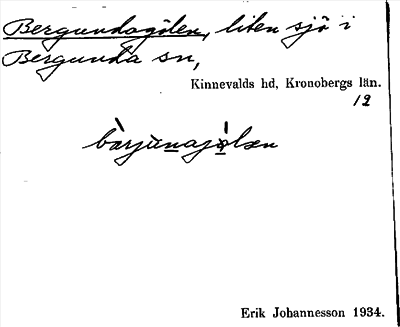 Bergundagölen, liten sjö i
Bergunda sn,
Kinnevalds hd, Kronobergs län.
12
Erik Johannesson 1934.